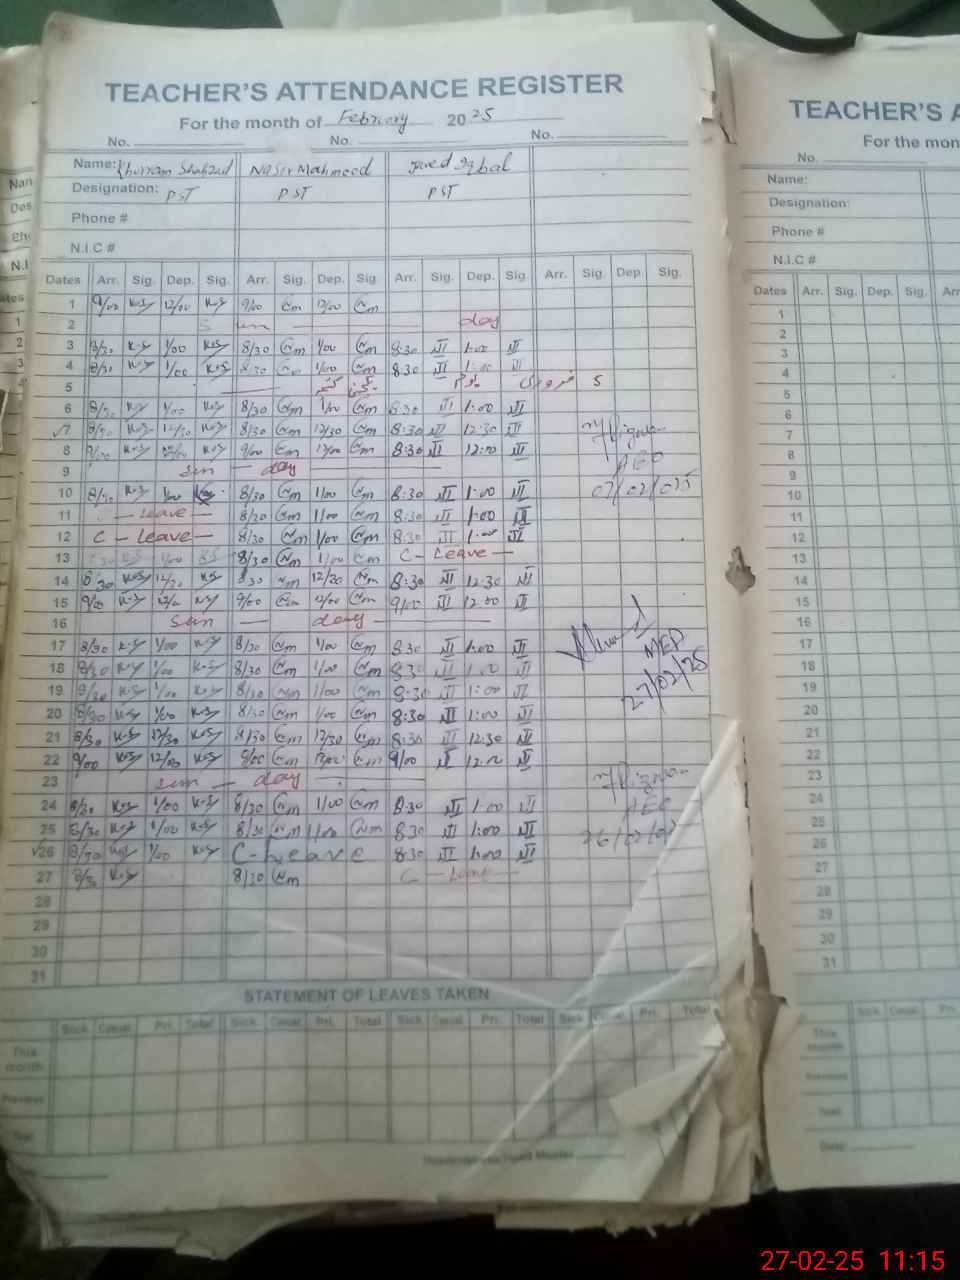 TEACHER'S ATTENDANCE REGISTER
For the month of February 2025
No. No. No.
Name: Khurram Shahzad Nasir Mahmood Javed Iqbal
Designation: PST PST PST
Phone #
N.I.C #
Dates Arr. Sig. Dep. Sig. Arr. Sig. Dep. Sig. Arr. Sig. Dep. Sig. Arr. Sig. Dep. Sig.
1 9/00 K-S 12/00 K-S 9/00 Nm 12/00 Nm
2 Sun day
3 8/30 K-S 1/00 K-S 8/30 Nm 1/00 Nm 8:30 1:00
4 8/30 K-S 1/00 K-S 8/30 Nm 1/00 Nm 8:30 1:00
5 یوم کشمیر 5 فروری
6 8/30 K-S 1/00 K-S 8/30 Nm 1/00 Nm 8:30 1:00
7 8/30 K-S 12/30 K-S 8/30 Nm 12/30 Nm 8:30 12:30
8 9/00 K-S 12/00 K-S 9/00 Nm 12/00 Nm 8:30 12:00
AEO
9 Sun day
10 8/30 K-S 1/00 8/30 Nm 1/00 Nm 8:30 1:00
07/02/025
11 Leave 8/30 Nm 1/00 Nm 8:30 1:00
12 C - Leave 8/30 Nm 1/00 Nm 8:30 1:00
13 8/30 K-S 1/00 K-S 8/30 Nm 1/00 Nm C - Leave
14 8/30 K-S 12/30 K-S 8/30 Nm 12/30 Nm 8:30 12:30
15 9/00 K-S 12/00 K-S 9/00 Nm 12/00 Nm 9/00 12:00
16 Sun day
17 8/30 K-S 1/00 K-S 8/30 Nm 1/00 Nm 8:30 1:00
MEA
18 8/30 K-S 1/00 K-S 8/30 Nm 1/00 Nm 8:30 1:00
27/02/25
19 8/30 K-S 1/00 K-S 8/30 Nm 1/00 Nm 8:30 1:00
20 8/30 K-S 1/00 K-S 8/30 Nm 1/00 Nm 8:30 1:00
21 8/30 K-S 12/30 K-S 8/30 Nm 12/30 Nm 8:30 12:30
22 9/00 K-S 12/00 K-S 9/00 Nm 12/00 Nm 9/00 12:00
23 Sun day
24 8/30 K-S 1/00 K-S 8/30 Nm 1/00 Nm 8:30 1:00
AEO
25 8/30 K-S 1/00 K-S 8/30 Nm 1/00 Nm 8:30 1:00
26 8/30 K-S 1/00 K-S C-Leave 8:30 1:00
27 8/30 K-S 8/30 Nm C - Leave
28
29
30
31
STATEMENT OF LEAVES TAKEN
Sick Casual Pri. Total Sick Casual Pri. Total Sick Casual Pri. Total Sick Casual Pri. Total
This month
Previous
Total
TEACHER'S A
For the mon
No.
Name:
Designation:
Phone #
N.I.C #
Dates Arr. Sig. Dep. Sig. Arr
1
2
3
4
5
6
7
8
9
10
11
12
13
14
15
16
17
18
19
20
21
22
23
24
25
26
27
28
29
30
31
Sick Casual Pri.
This Month
Previous
Total
27-02-25 11:15